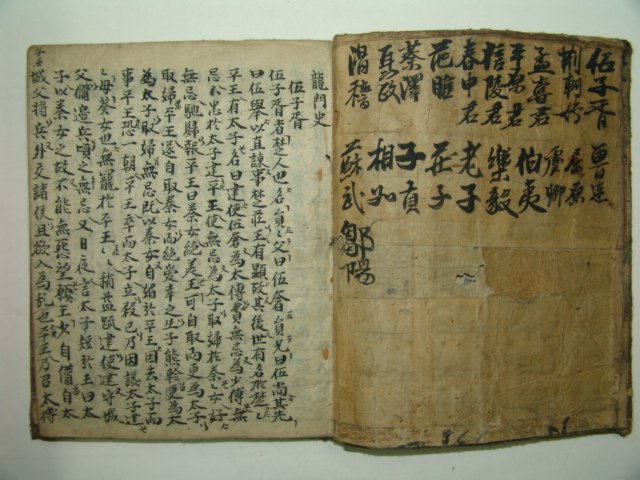 伍子胥 魯連
荊軻 屈原
孟嘗君 虞卿
平原君 伯夷
信陵君 樂毅
春申君 老子
范睢 莊子
蔡澤 子貢
聶政 相如
滑稽 蘇武 鄒陽
龍門史
伍子胥
伍子胥者楚人也名員〻父曰伍奢員兄曰伍尚其先
曰伍擧以直諫事楚莊王有顯故其後世有名於楚〻
平王有太子名曰建使伍奢為太傅費無忌為少傅無
忌不忠於太子建平王使無忌為太子取婦於秦〻女好
無忌馳歸報平王曰秦女絶美王可自取而更為太子
取婦平王遂自取秦女而絶愛幸之生子軫更為太
子取婦無忌既以秦女自媚於平王因去太子而
事平王恐一朝平王卒而太子立殺己乃因讒太子建〻
母蔡女也無寵於平王〻稍益疏建使建守城
父備邊兵頃之無忌又日夜言太子短於王曰太
子以秦女之故不能無怨望願王少自備自太
城父將兵外交諸侯且欲入為乱也平王乃召太傅